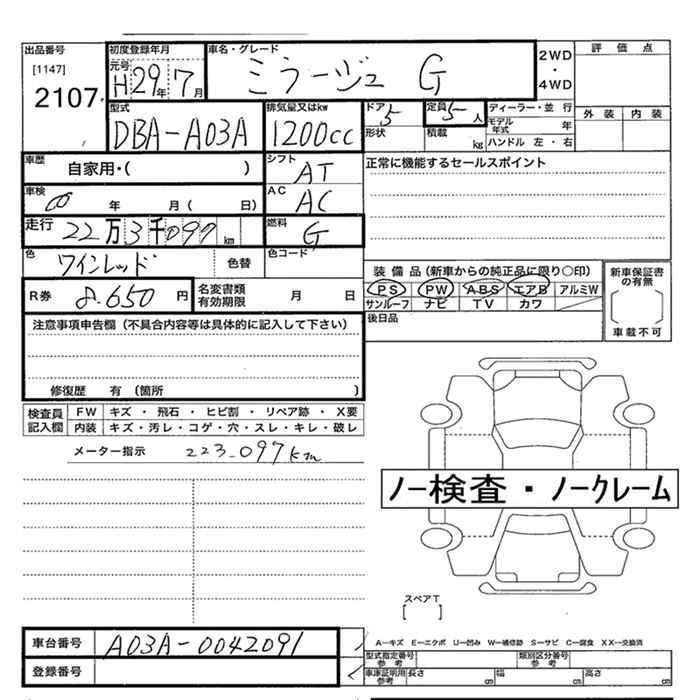 出品番号 [1147] 2107
初度登録年月 元号 H29年7月
車名・グレード ミラージュ G
2WD・4WD
評価点
外装 内装
型式 DBA-A03A
排気量又はkw 1200cc
ドア 5
形状
定員 5人
積載 kg
ディーラー・並行
モデル年式 年
ハンドル 左・右
車歴 自家用・( )
シフト AT
正常に機能するセールスポイント
車検 年 月( 日)
AC AC
走行 22万3千097km
燃料 G
色 ワインレッド 色替
色コード
R券 8.650円
名変書類有効期限 月 日
装備品(新車からの純正品に限り○印)
PS PW ABS エアB アルミW
サンルーフ ナビ TV カワ
新車保証書の有無
車載不可
後日品
注意事項申告欄(不具合内容等は具体的に記入して下さい)
修復歴 有(箇所 )
検査員記入欄
FW キズ・飛石・ヒビ割・リペア跡・X要
内装 キズ・汚レ・コゲ・穴・スレ・キレ・破レ
メーター指示 223-097km
ノー検査・ノークレーム
スペアT
[ ]
車台番号 A03A-0042091
登録番号
A-キズ E-エクボ U-凹み W-補修跡 S-サビ C-腐食 XX-交換済
型式指定番号 参考
類別区分番号 参考
車庫証明用 参考 長さ cm 幅 cm 高さ cm